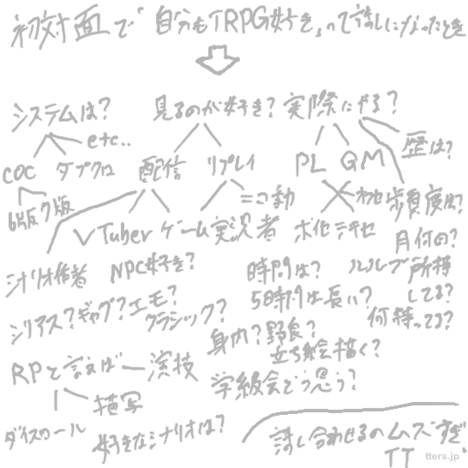 初対面で「自分もTRPG好き」って話しになったとき
システムは?
見るのが好き?
実際にやる?
etc..
COC
ダブクロ
配信
リプレイ
PL
GM
歴は?
6版
7版
ニコ動
頻度は?
Vtuber
ゲーム実況者
ボイセ
テキセ
月何の?
シナリオ作者
NPC好き?
時間は?
ルルブ所持してる?
シリアス?ギャグ?エモ?
クラシック?
5時間は長い?
何持ってる?
身内?野良?
RPと言えば
演技
立ち絵描く?
描写
学級会どう思う?
ダイスロール
好きなシナリオは?
話し合わせるのムズすぎ
TT
tters.jp